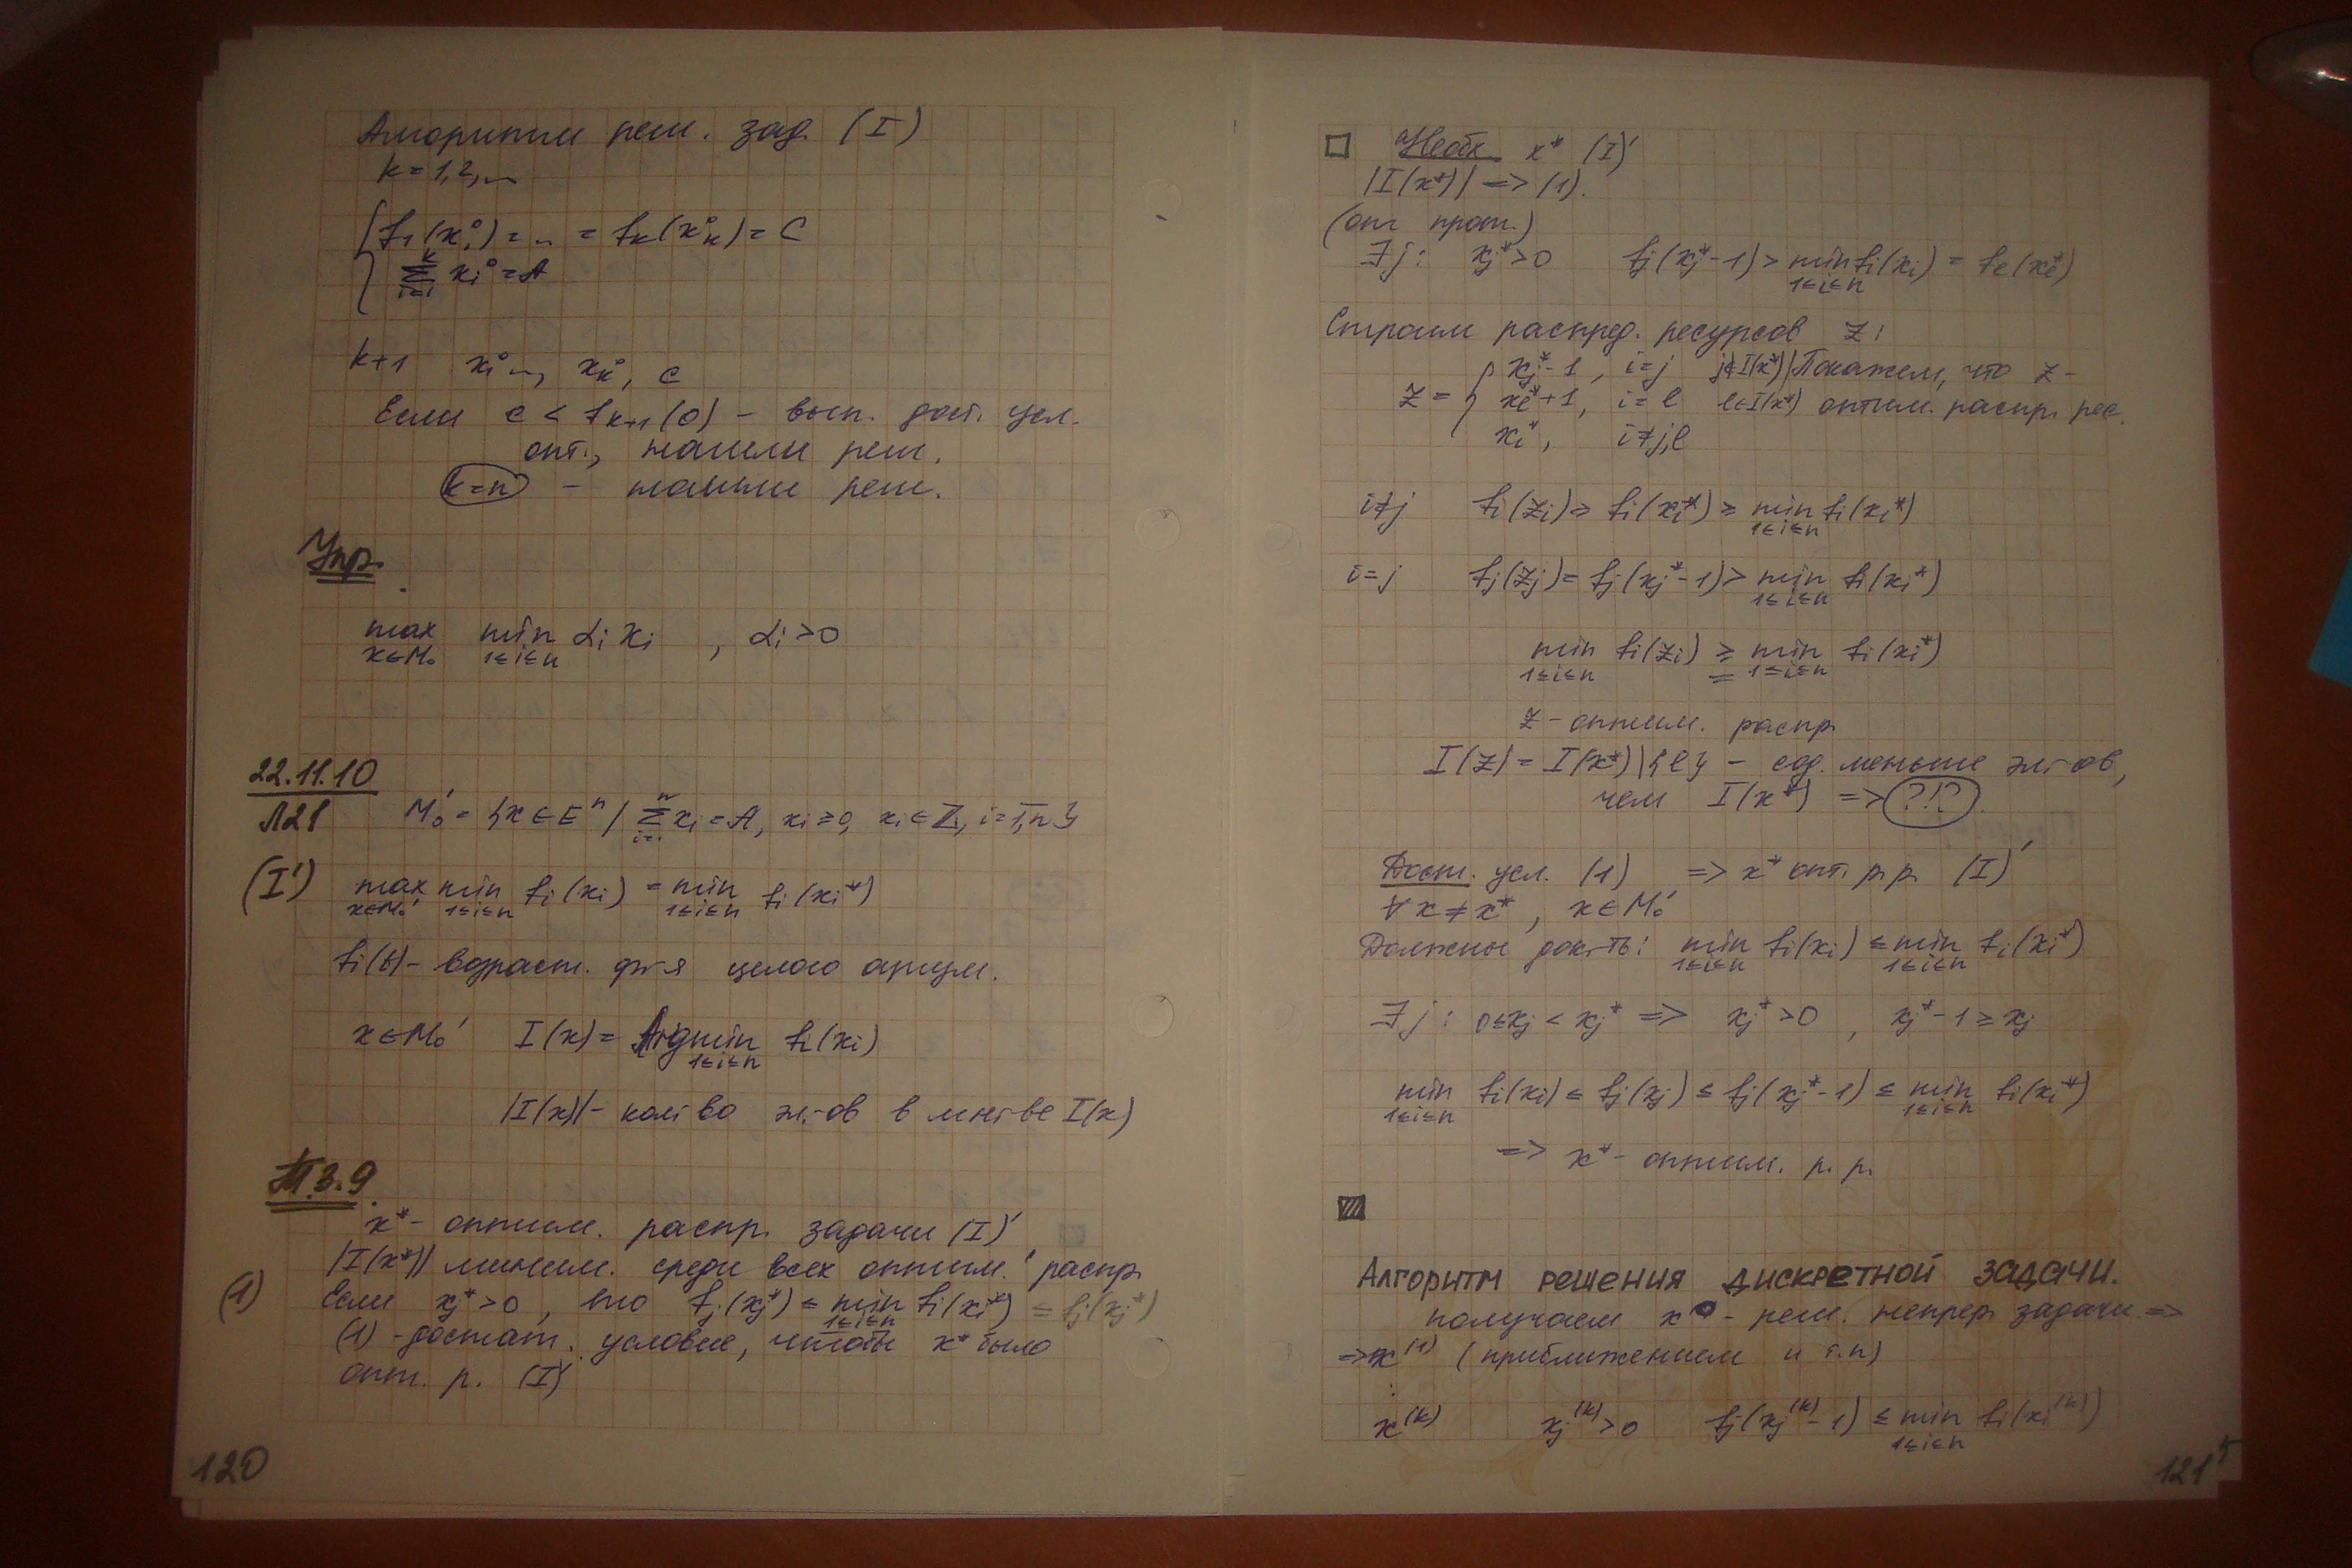 Алгоритм реш. зад. (I)
k = 1, 2, ...
{ f₁(x₁⁰) = ... = f_k(x_k⁰) = C
∑_{i=1}^{k} x_i⁰ = A
k+1 x₁⁰ ..., x_k⁰, C
Если C < f_{k+1}(0) – вып. дост. усл.
опт., нашли реш.
k=n – нашли реш.
Упр.
max_{x∈M₀} min_{1≤i≤n} α_i x_i , α_i > 0
22.11.10
Л21
M₀' = {x ∈ Eⁿ / ∑_{i=1}^{n} x_i = A, x_i ≥ 0, x_i ∈ Z, i = 1,n}
(I') max_{x∈M₀'} min_{1≤i≤n} f_i(x_i) = min_{1≤i≤n} f_i(x_i*)
f_i(t) – возраст. ф-я целого аргум.
x ∈ M₀' I(x) = Argmin_{1≤i≤n} f_i(x_i)
|I(x)| – кол-во эл-ов в мн-ве I(x)
Т 3.9.
x* – оптим. распр. задачи (I)'
|I(x*)| миним. среди всех оптим. распр.
(1) Если x_j* > 0, то f_j(x_j*) ≤ min_{1≤i≤n} f_i(x_i*) ≤ f_j(x_j*)
(1) – достат. условие, чтобы x* было
опт. р. (I)'
120
□ Необх. x* (I)'
|I(x*)| => (1).
(от прот.)
∃ j: x_j* > 0 f_j(x_j* - 1) > min_{1≤i≤n} f_i(x_i) = f_l(x_l*)
Строим распред. ресурсов z:
z = { x_j* - 1, i = j j∉I(x*) | Покажем, что z –
x_l* + 1, i = l l∈I(x*) оптим. распр. рес.
x_i*, i ≠ j, l
i ≠ j f_i(z_i) ≥ f_i(x_i*) ≥ min_{1≤i≤n} f_i(x_i*)
i = j f_j(z_j) = f_j(x_j* - 1) > min_{1≤i≤n} f_i(x_i*)
min_{1≤i≤n} f_i(z_i) ≥ min_{1≤i≤n} f_i(x_i*)
z – оптим. распр.
I(z) = I(x*)\{l} – сод. меньше эл-ов,
чем I(x*) => ?!?
Дост. усл. (1) => x* опт. р.р. (I)'
∀ x ≠ x*, x ∈ M₀'
Должны док-ть: min_{1≤i≤n} f_i(x_i) ≤ min_{1≤i≤n} f_i(x_i*)
∃ j: 0 ≤ x_j < x_j* => x_j* > 0, x_j* - 1 ≥ x_j
min_{1≤i≤n} f_i(x_i) ≤ f_j(x_j) ≤ f_j(x_j* - 1) ≤ min_{1≤i≤n} f_i(x_i*)
=> x* – оптим. р. р.
Алгоритм решения дискретной задачи.
получаем x⁰ – реш. непрер. задачи =>
=> x⁽¹⁾ (приближением и т.п)
⋮
x⁽ᵏ⁾ x_j⁽ᵏ⁾ > 0 f_j(x_j⁽ᵏ⁾ - 1) ≤ min_{1≤i≤n} f_i(x_i⁽ᵏ⁾)
121